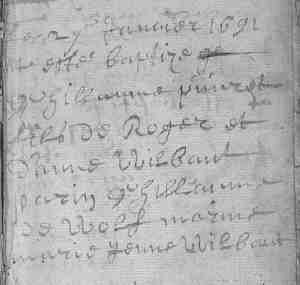 Le 27e Janvier 1691
a este baptize
ghillaume poirot
fils de Roger et
d'Anne Wilbaut
parin ghillaume
de Wolf marine
marie Jenne Wilbaut